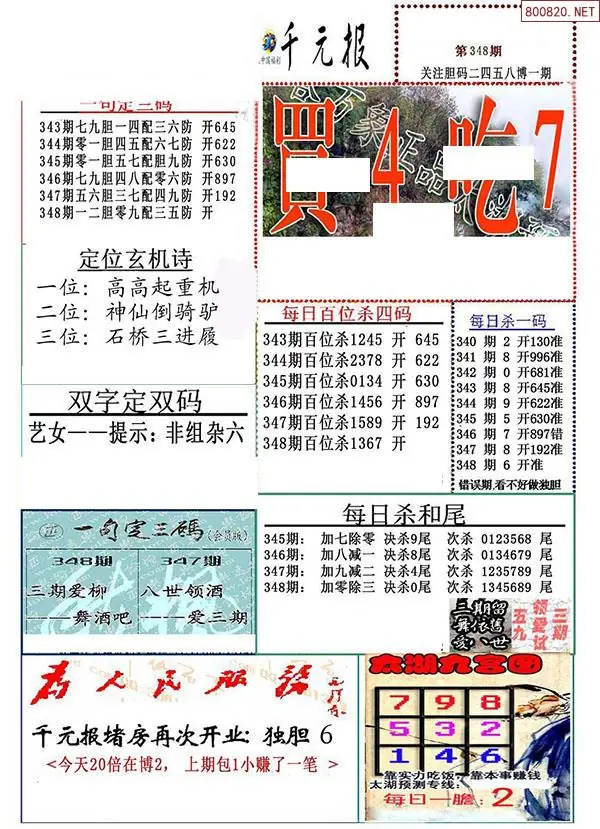 800820.NET
千元报
中国福利
第348期
关注胆码二四五八博一期
一句定三码
343期七九胆一四配三六防 开645
344期零一胆四五配六七防 开622
345期零一胆五七配胆九防 开630
346期七九胆四八配零六防 开897
347期五六胆三七配四九防 开192
348期一二胆零九配三五防 开
買4吃7
定位玄机诗
一位：高高起重机
二位：神仙倒骑驴
三位：石桥三进履
每日百位杀四码
343期百位杀1245 开 645
344期百位杀2378 开 622
345期百位杀0134 开 630
346期百位杀1456 开 897
347期百位杀1589 开 192
348期百位杀1367 开
每日杀一码
340 期 2 开130准
341 期 8 开996准
342 期 0 开681准
343 期 8 开645准
344 期 9 开622准
345 期 5 开630准
346 期 7 开897错
347 期 8 开192准
348 期 6 开准
错误期,看不好做独胆
双字定双码
艺女——提示：非组杂六
一句定三碼(会员版)
348期 347期
三期爱柳 八世领酒
----舞酒吧 ----爱三期
每日杀和尾
345期： 加七除零 决杀9尾 次杀 0123568 尾
346期： 加八减一 决杀8尾 次杀 0134679 尾
347期： 加九减二 决杀4尾 次杀 1235789 尾
348期： 加零除三 决杀0尾 次杀 1345689 尾
三期留
舞依舊
爱八世
三期
领爱试
五九
为人民服务
千元报堵房再次开业：独胆 6
<今天20倍在博2， 上期包1小赚了一笔 >
太湖九宫图
7 9 8
5 3 2
1 4 6
靠实力吃饭，靠本事赚钱
太湖预测专线：
每日一膽：2